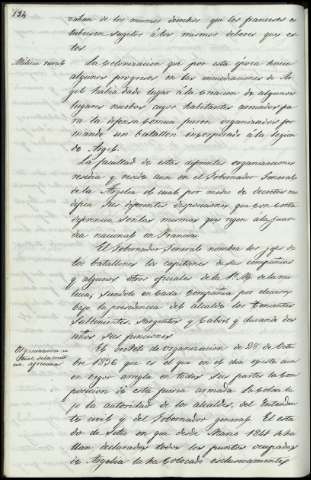 124
zaban de los mismos derechos que los franceses e
tubiesen sugetos á los mismos deberes que es-
tos.
Milicia rural
La colonizacion que por esta época hacia
algunos progresos en las inmediaciones de Ar-
gel habia dado lugar á la creacion de algunos
lugares cuyos habitantes armados pa-
ra la defensa comun fueron organizados for
mando un batallon incorporado á la legion
de Argel.
La facultad de estas diferentes organizaciones
residia y reside aun en el Gobernador General
de la Argelia el cual por medio de decretos mo
difica sus diferentes disposiciones que con corta
diferencia son las mismas que rigen á la guar
dia nacional en Francia.
El Gobernador General nombra los gefes de
los batallones los capitanes de las compañias
y algunos otros oficiales de la P. M. de la mi
licia, siendolo en cada compañia por electores
bajo la presidencia del alcalde los Tenientes
Subtenientes, Sargentos y Cabos y durarán dos
años sus funciones.
Organizacion
El decreto de organizacion de 28 de Octu
bre 1836 que es el que en el dia existe aun
en vigor arregla en todas sus partes la com
posicion de esta fuerza armada la coloca ba
jo la autoridad de los alcaldes, del Intenden
te civil y del Gobernador general. El esta
do de sitio en que desde Marzo 1841 se ha
llan declarados todos los puntos ocupados
de Argelia la ha colocado esclusivamente